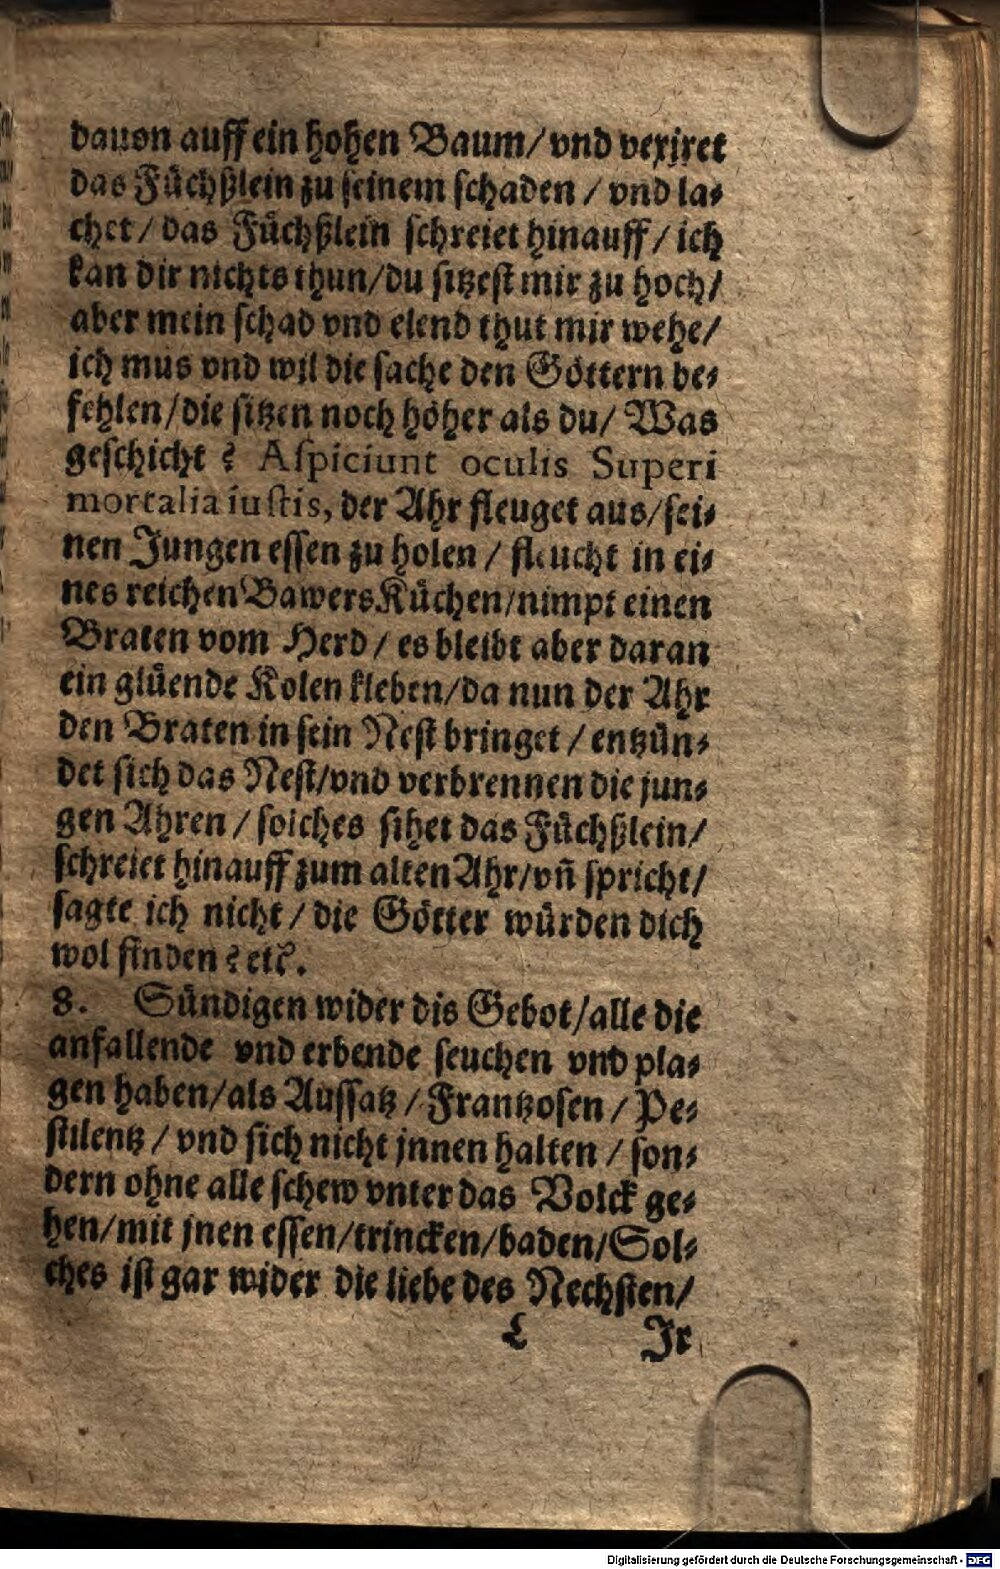 dauon auff ein hohen Baum/ vnd vexiret
das Fuͤchßlein zu seinem schaden / vnd la⸗
chet/ das Fuͤchßlein schreiet hinauff/ ich
kan dir nichts thun/du sitzest mir zu hoch/
aber mein schad vnd elend thut mir wehe/
ich mus vnd wil die sache den Goͤttern be⸗
fehlen/die sitzen noch hoͤher als du/ Was
geschicht? Aspiciunt oculis Superi
mortalia iustis, der Ahr fleuget aus/sei⸗
nen Jungen essen zu holen / fleucht in ei⸗
nes reichen Bawers Kuͤchen/nimpt einen
Braten vom Herd/ es bleibt aber daran
ein gluͤende Kolen kleben/da nun der Ahr
den Braten in sein Nest bringet / entzuͤn⸗
det sich das Nest/vnd verbrennen die jun⸗
gen Ahren / solches sihet das Fuͤchßlein/
schreiet hinauff zum alten Ahr/vñ spricht/
sagte ich nicht / die Goͤtter wuͤrden dich
wol finden? etc.
8. Suͤndigen wider dis Gebot/alle die
anfallende vnd erbende seuchen vnd pla⸗
gen haben/als Aussatz / Frantzosen / Pe⸗
stilentz / vnd sich nicht jnnen halten / son⸗
dern ohne alle schew vnter das Volck ge⸗
hen/mit jnen essen/trincken/baden/Sol⸗
ches ist gar wider die liebe des Nechsten/
L Jr
Digitalisierung gefördert durch die Deutsche Forschungsgemeinschaft - DFG